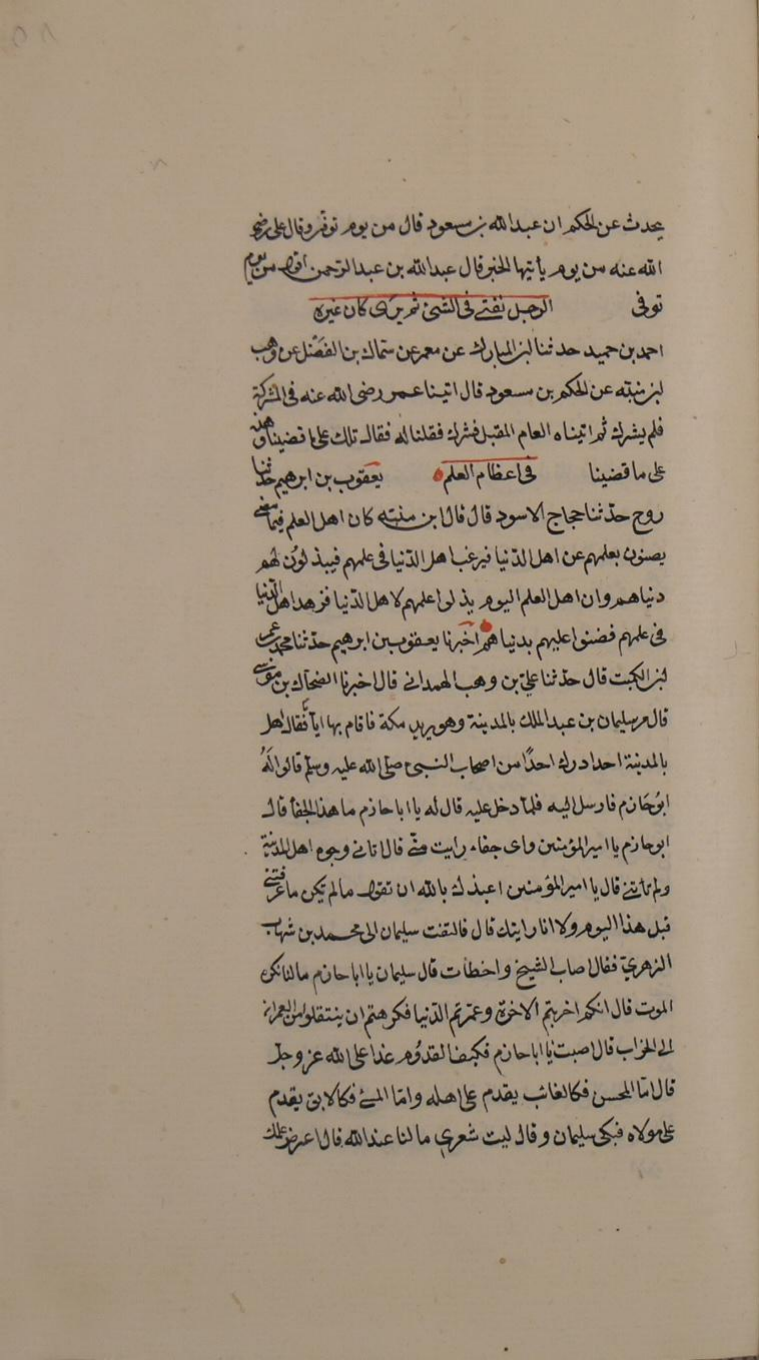 يحدث عن الحكم ان عبد الله بن مسعود قال من يوم توفى وقال على رضى
الله عنه من يوم يأتيها الخبر قال عبد الله بن عبد الرحمن اقول من يوم
توفى الرجل يفتى فى الشئ ثم يرى كان غيره
احمد بن حميد حدثنا ابن المبارك عن معمر عن سماك بن الفضل عن وهب
ابن منبته عن الحكم بن مسعود قال اتينا عمر رضى الله عنه فى المشركة
فلم يشرك ثم اتيناه العام المقبل فشرك فقلنا له فقال تلك على ما قضينا وهذه
على ما قضينا فى اعظام العلم يعقوب بن ابرهيم حدثنا
روح حدثنا حجاج الاسود قال قال ابن منبته كان اهل العلم فيما مضى
يضنون بعلمهم عن اهل الدنيا فيرغب اهل الدنيا فى علمهم فيبذلون لهم
دنياهم وان اهل العلم اليوم بذلوا علمهم لاهل الدنيا فزهد اهل الدنيا
فى علمهم فضنوا عليهم بدنياهم اخبرنا يعقوب بن ابرهيم حدثنا محمد بن عمر
ابن الكيت قال حدثنا على بن وهب الهمدانى قال اخبرنا الضحاك بن موسى
قال مر سليمان بن عبد الملك بالمدينة وهو يريد مكة فاقام بها اياما فقال اهل
بالمدينة احد ادرك احدًا من اصحاب النبى صلى الله عليه وسلم قالوا لَهُ
ابُو حَازم فارسل اليه فلما دخل عليه قال له يا ابا حازم ما هذا الجفأ قال
ابو حازم يا امير المؤمنين واى جفاء رايت منّى قال اتانى وجوه اهل المدينة
ولم تأتنى قال يا امير المؤمنين اعيذك بالله ان تقول مالم يكن ما عرفتنى
قبل هذا اليوم ولا انا رايتك قال فالتفت سليمان الى محمد بن شهاب
الزهرى فقال اصاب الشيخ واخطأت قال سليمان يا ابا حازم مالنا نكره
الموت قال انكم اخربتم الاخرة وعمرتم الدنيا فكرهتم ان ينتقلوا من العمران
الى الخراب قال اصبت يا ابا حازم فكيف القدُوم غدا على الله عز وجل
قال امّا المحسن فكالغائب يقدم على اهله وامّا المسئ فكالابق يقدم
على مولاه فبكى سليمان وقال ليت شعرى ما لنا عند الله قال اعرض عملك